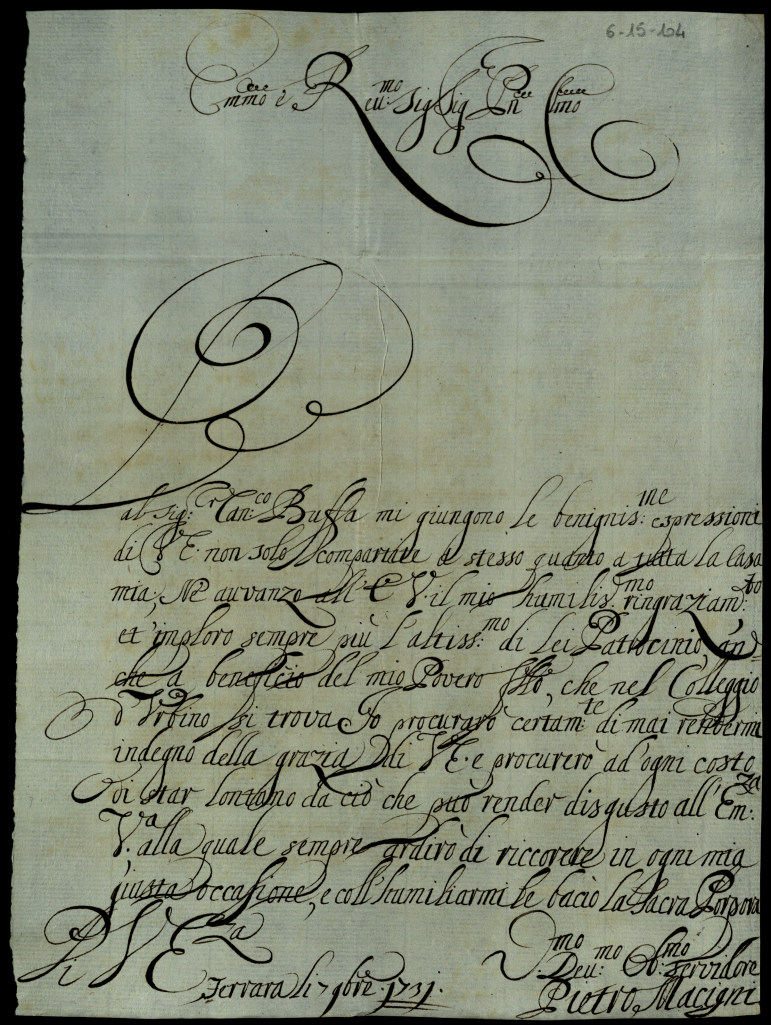 6-15-104
Emmo è Reu:mo Sig Sig Pñ Cmo
Dal Sig:r Can:co Buffa mi giungono le benignis:me espressioni
di V E. non solo compartite a stesso quanto a tutta la Casa
mia; Ne auvanzo all' E V. il mio humilis:mo ringraziam:to
et imploro sempre più l'altiss:mo di Lei Patrocinio, an-
che a beneficio del mio Povero che nel Colleggio
d'Urbino si trova Io procurarò certam:te di mai rendermi
indegno della grazia di V E. e procurerò ad'ogni costo
di star lontano da ciò che può render disgusto all' Em:za
V.a alla quale sempre ardirò di riccorere in ogni mia
giusta occasione, e coll'humiliarmi le bacio la Sacra Porpora
Di V Eza
Ferrara li 7 gbre 1731.
Deu:mo Ob:mo servidore
Pietro Macigni